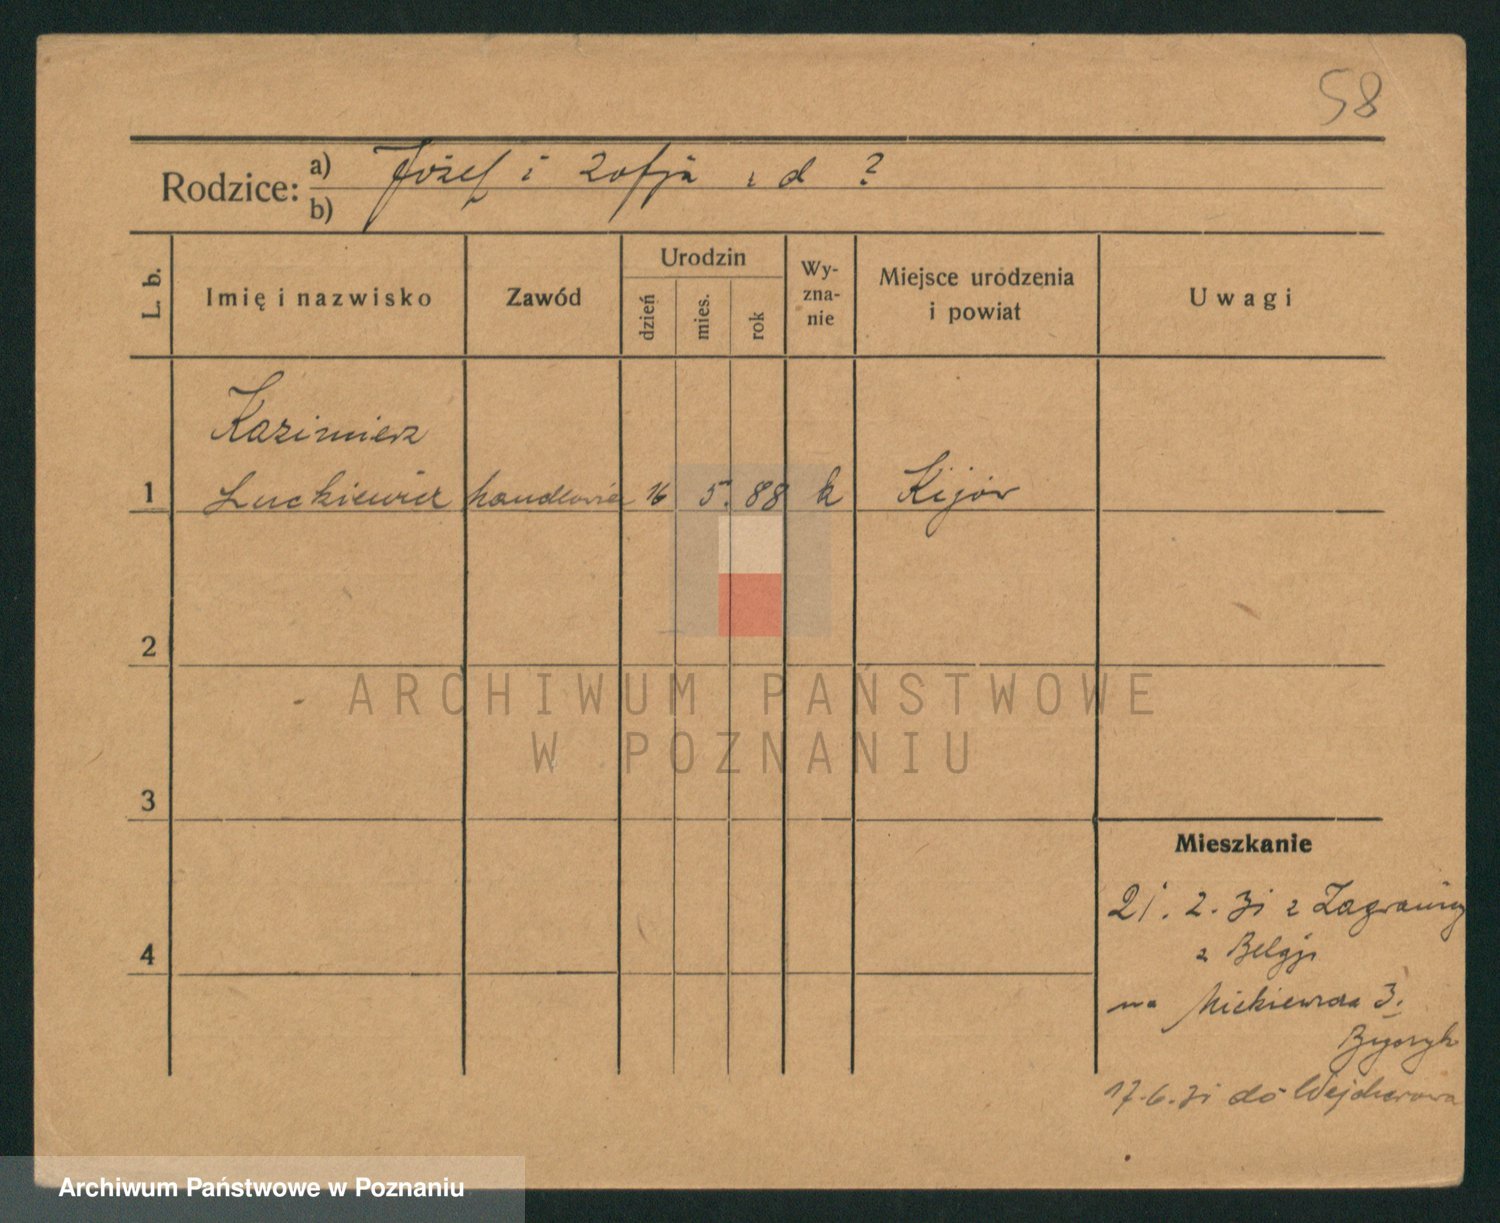 58
Rodzice: a) Józef i Zofja z d ?
b)
L. b.
Imię i nazwisko
Zawód
Urodzin
dzień
mies.
rok
Wy-
zna-
nie
Miejsce urodzenia
i powiat
Uwagi
Kazimierz
1 Luckiewicz handlowiec 16 5. 88 k Kijów
2
ARCHIWUM PAŃSTWOWE
W POZNANIU
3
Mieszkanie
21. 2. 31 z Zagranicy
z Belgji
4
na Mickiewicza 3.
17.6.31 do Wejherowa
Archiwum Państwowe w Poznaniu